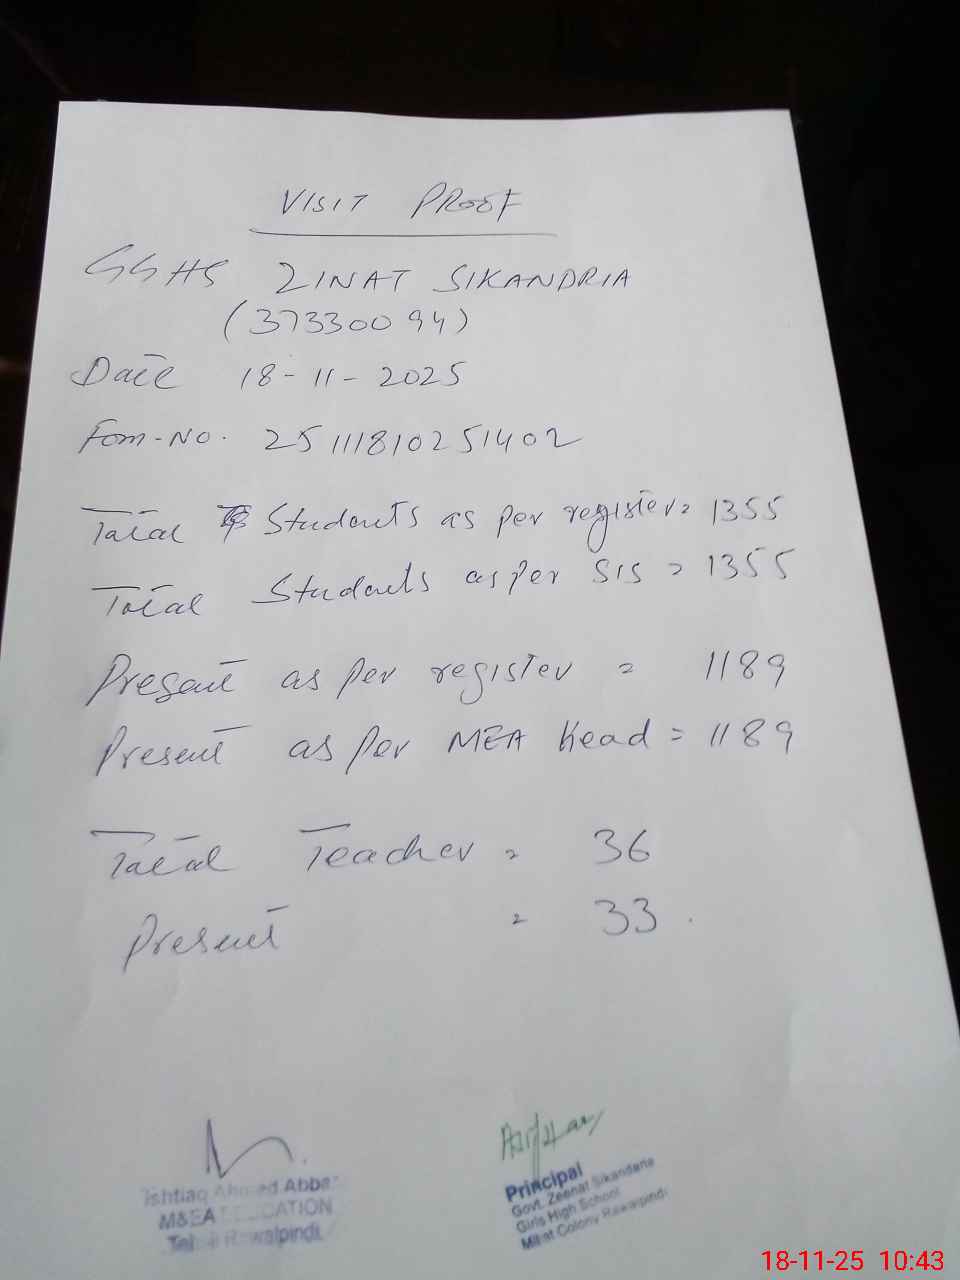 VISIT PROOF
GGHS ZINAT SIKANDRIA
(37330094)
Date 18-11-2025
Fom-No. 25111810251402
Total Students as per register = 1355
Total Students as per SIS = 1355
Present as per register = 1189
Present as per MEA Head = 1189
Total Teacher = 36
Present = 33.
Ishtiaq Ahmed Abbasi
M&EA EDUCATION
Tehsil Rawalpindi.
Principal
Govt. Zeenat Sikandaria
Girls High School
Millat Colony Rawalpindi
18-11-25 10:43